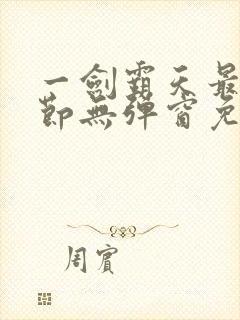 一劍霸天最
節無彈窗免
周賓